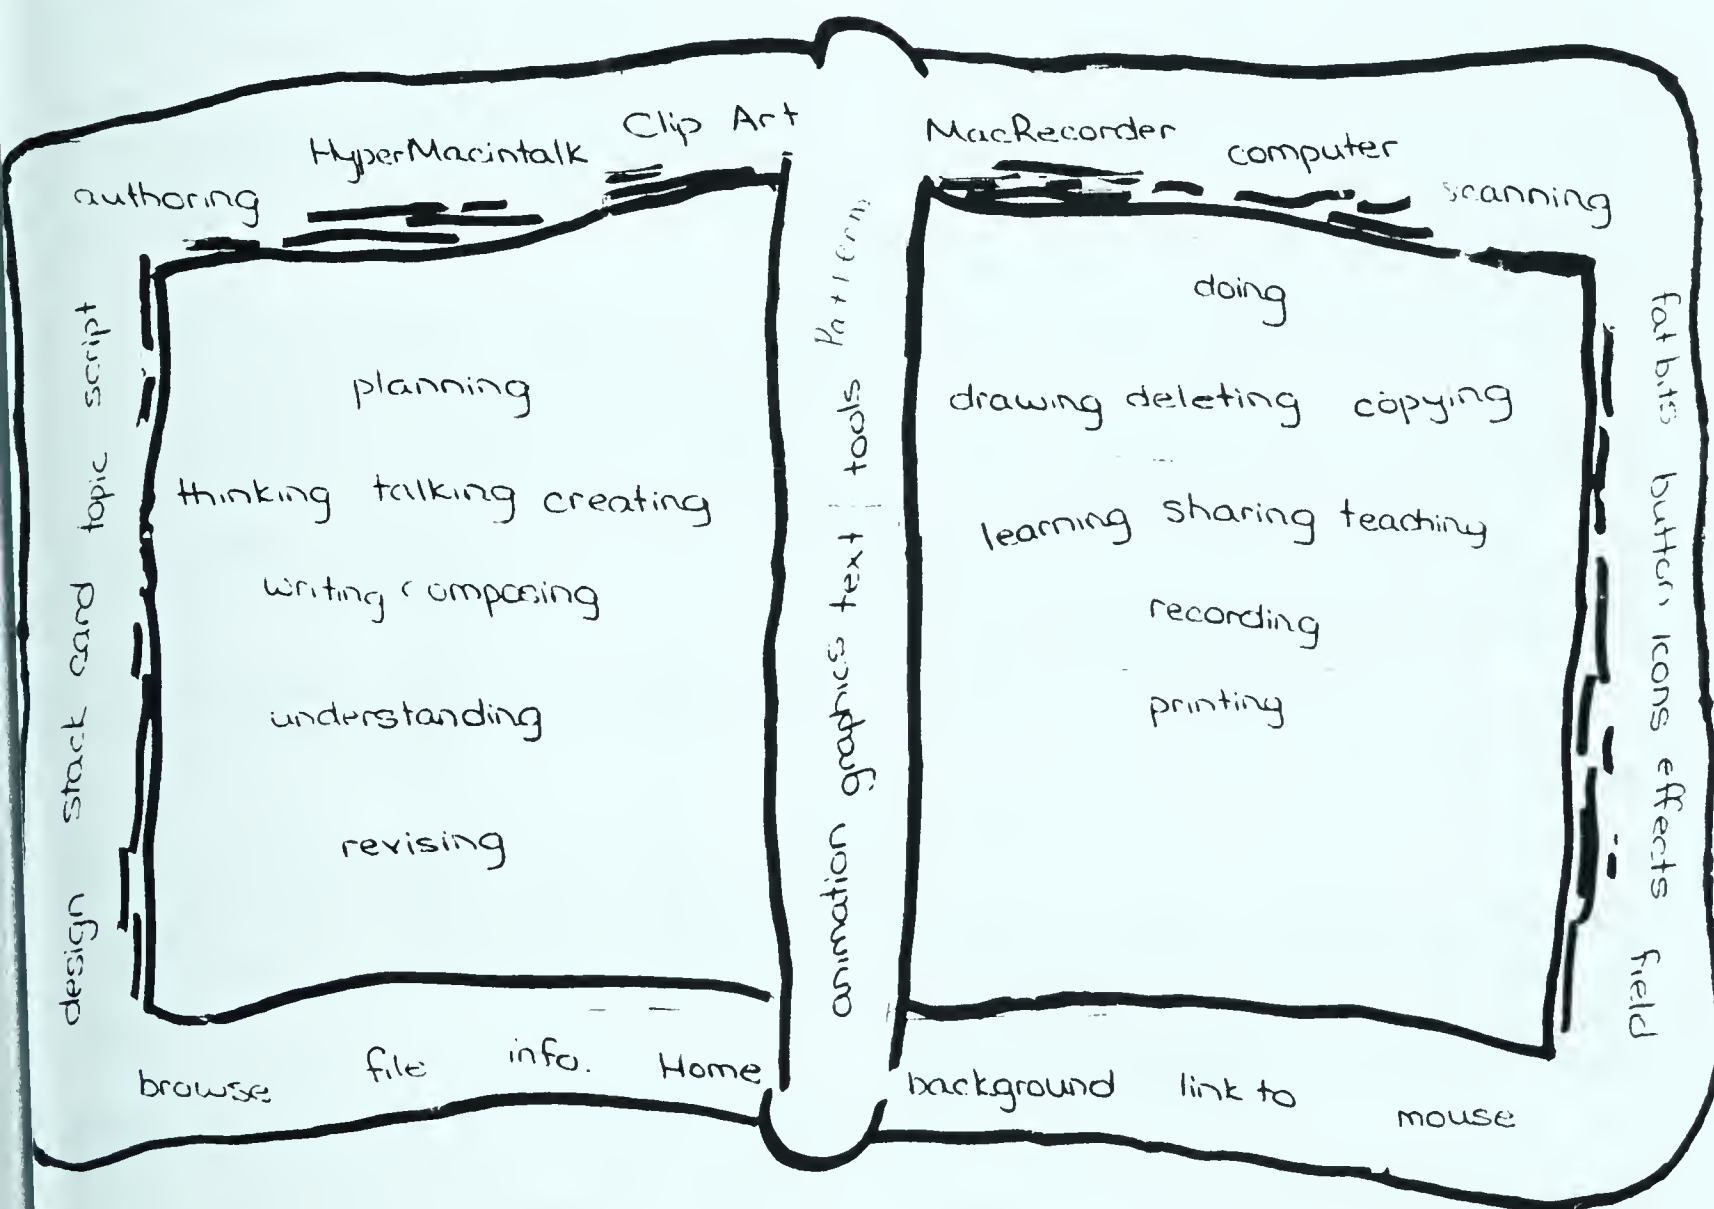 authoring HyperMacintalk Clip Art
MacRecorder computer scanning
design stack card topic script
planning
thinking talking creating
writing composing
understanding
revising
animation graphics text tools Patterns
doing
drawing deleting copying
learning sharing teaching
recording
printing
fatbits button icons effects field
browse file info. Home
background link to mouse